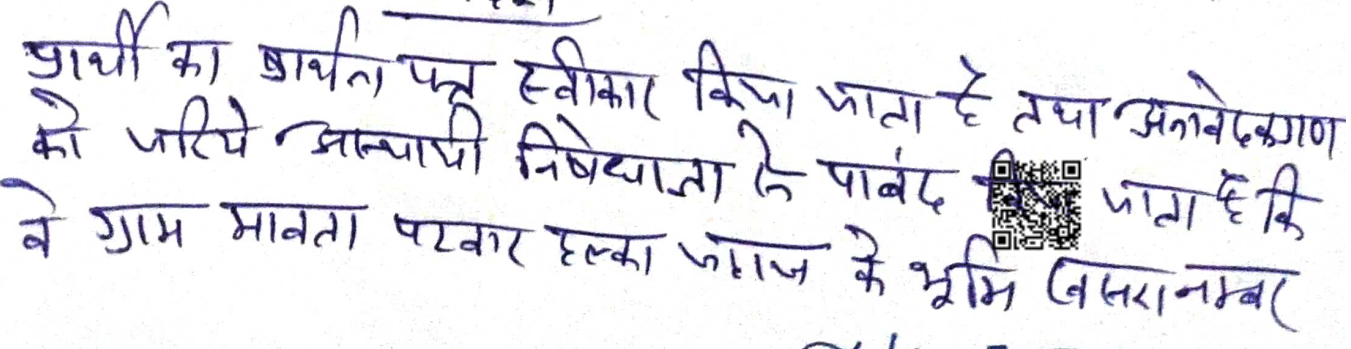 प्रार्थी का प्रार्थना पत्र स्वीकार किया जाता है तथा अनावेदकगण
को जरिये अस्थायी निषेधाज्ञा के पाबंद जाता है कि
वे ग्राम मावता पटवार हल्का के भूमि खसरा नम्बर